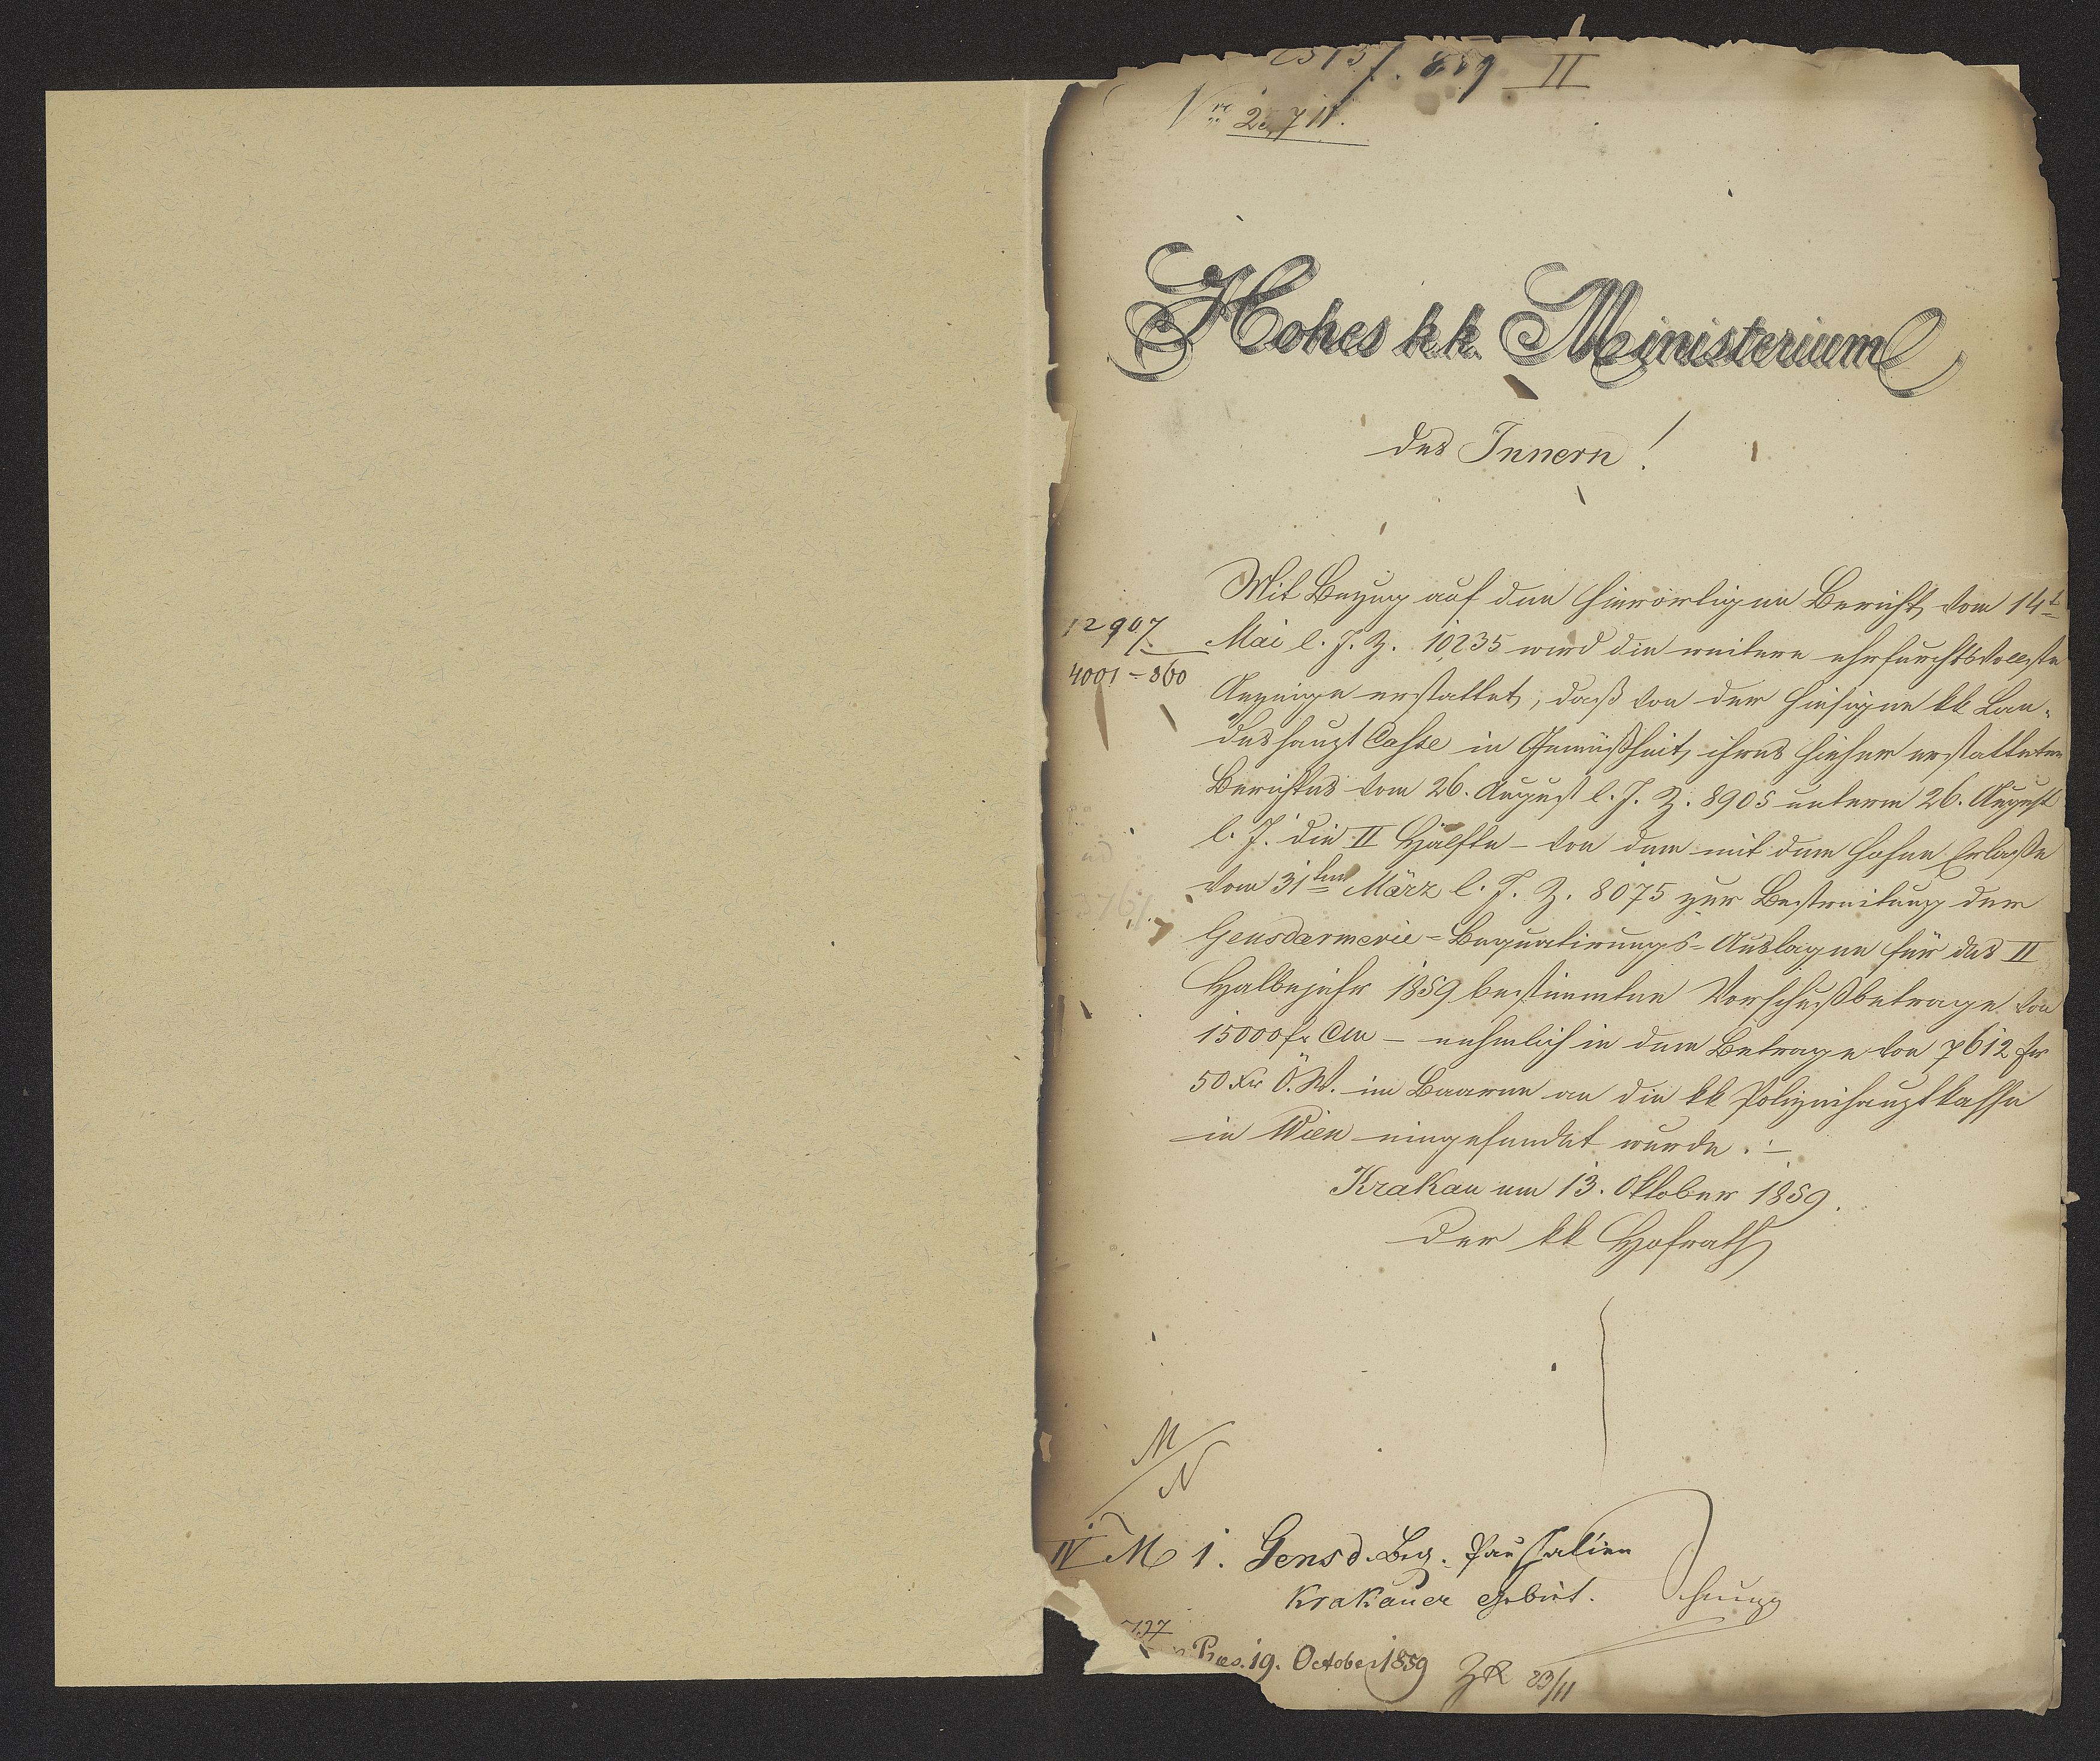 859 II
Nro
Hohes k.k. Ministerium
des Innern!
Mit Bezug auf den hierortigen Bericht vom 14t
12907
Mai l. J. Z. 10235 wird die weitere ehrfurchtsvollste
4001-860
Anzeige erstattet, daß von der hiesigen kk Lan-
deshaupt Casse in Gemäßheit ihres hieher erstatteten
Berichtes vom 26. August l. J. Z. 8905 unterm 26. August
l. J. die II Hälfte – von dem mit dem hohen Erlaße
vom 31ten März l. J. Z. 8075 zur Bestreitung der
Gensdarmerie-Bequartirungs-Auslagen für das II
Halbejahr 1859 bestimmten Vorschußbetrage von
15000 fr CM – nehmlich in dem Betrage von 7612 fr
50 Kr Ö.W. im Baaren an die kk Polizeihauptkasse
in Wien eingesendet wurde. –
Krakau am 13. Oktober 1859.
Der kk Hofrath
M
N
IV M 1. Gensd. Beq. Pauschalien
Krakauer Gebiet.
Praes. 19. October 1859
23/11